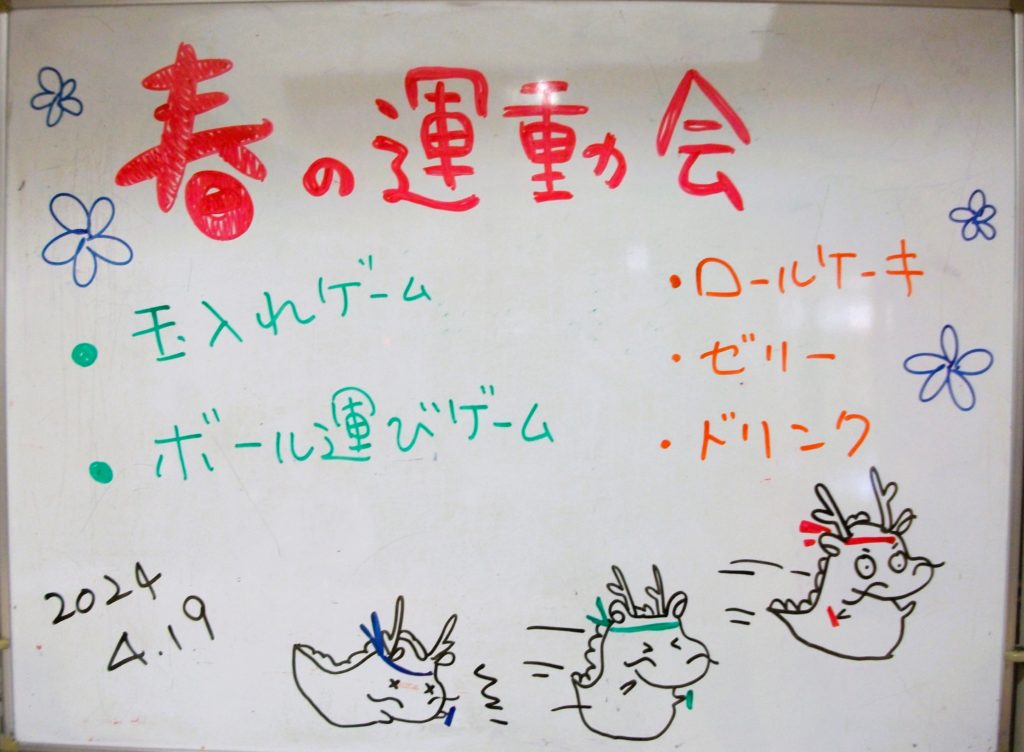 春の運動会
・玉入れゲーム
・ボール運びゲーム
・ロールケーキ
・ゼリー
・ドリンク
2024
4.19